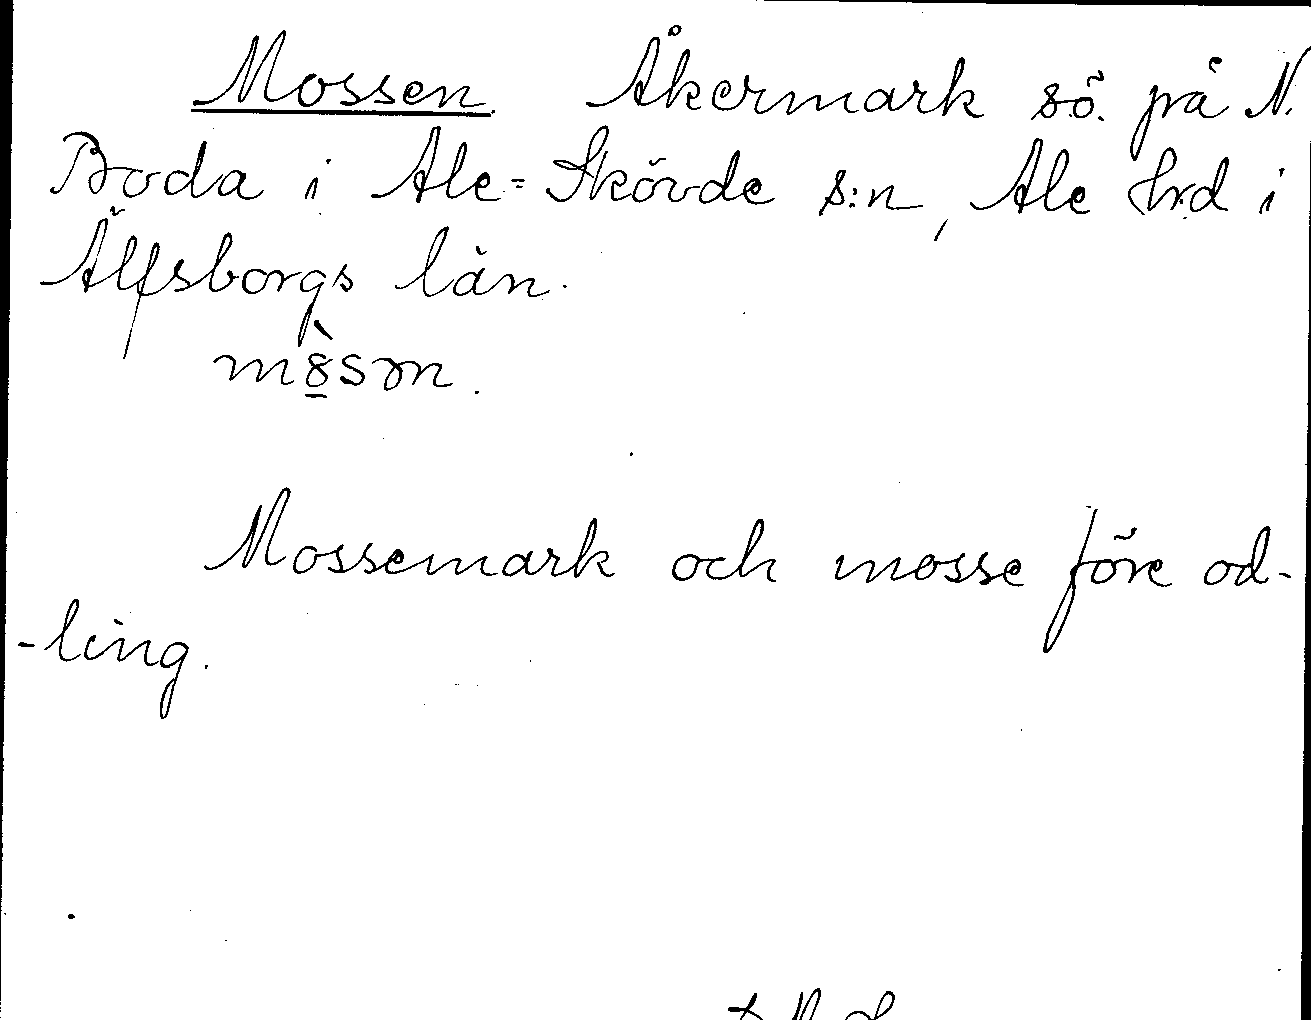 Mossen. Åkermark sö. på N.
Boda i Ale-Skövde s:n, Ale hrd i
Älfsborgs län.
m8̀sən.
Mossemark och mosse före od-
-ling.